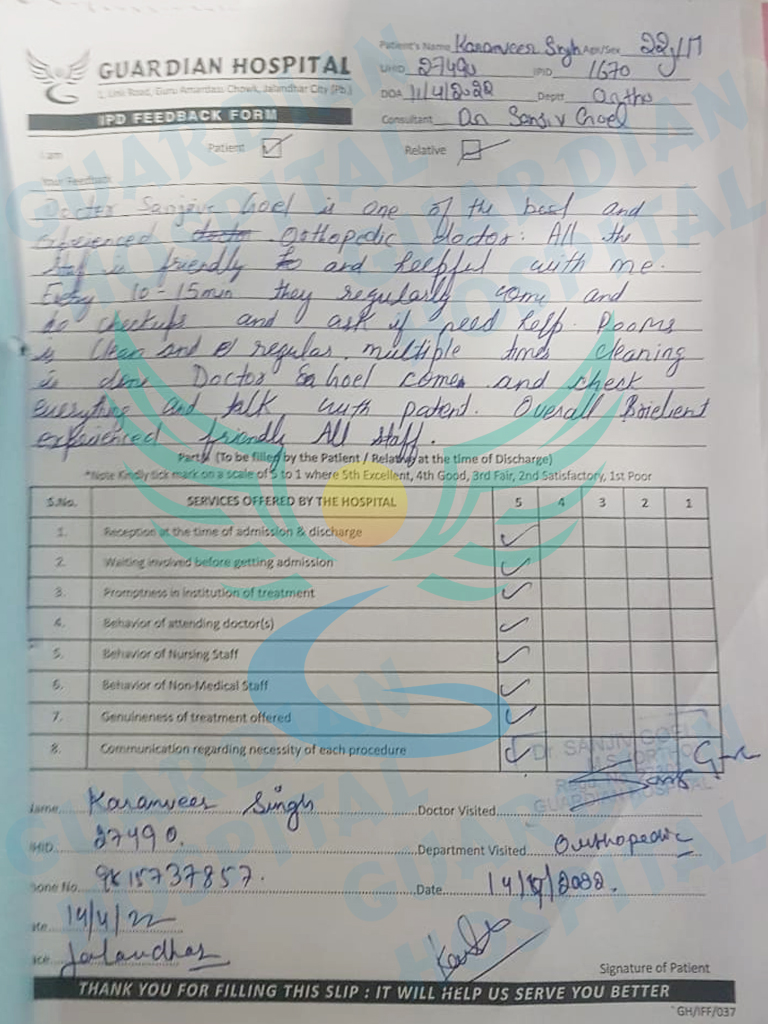 GUARDIAN HOSPITAL
1, Link Road, Guru Amardass Chowk, Jalandhar City (Pb.)
IPD FEEDBACK FORM
Patient's Name Karanveer Singh Age/Sex 22/M
UHID 27490 IPID 1670
DOA 11/4/2022 Deptt Ortho
Consultant Dr Sanjiv Goel
I am Patient Relative
Your Feedback
Doctor Sanjeev Goel is one of the best and
experienced Orthopedic doctor. All the
staff is friendly and helpful with me.
Every 10-15min they regularly come and
do checkups and ask if need help. Rooms
is clean and regular multiple times cleaning
is done Doctor Goel comes and check
everything and talk with patent. Overall
experienced friendly All staff.
Part (To be filled by the Patient / Relative at the time of Discharge)
*Note Kindly tick mark on a scale of 5 to 1 where 5th Excellent, 4th Good, 3rd Fair, 2nd Satisfactory, 1st Poor
S.No. SERVICES OFFERED BY THE HOSPITAL 5 4 3 2 1
1. Reception at the time of admission & discharge
2. Waiting involved before getting admission
3. Promptness in institution of treatment
4. Behavior of attending doctor(s)
5. Behavior of Nursing Staff
6. Behavior of Non-Medical Staff
7. Genuineness of treatment offered
8. Communication regarding necessity of each procedure
Dr SANJIV GOEL
M.S. ORTHO
GUARDIAN HOSPITAL
Name Karanveer Singh Doctor Visited
UHID 27490. Department Visited Orthopedic
Phone No. 9815737857. Date 14/4/2022.
Date 14/4/22
Place Jalandhar
Signature of Patient
THANK YOU FOR FILLING THIS SLIP : IT WILL HELP US SERVE YOU BETTER
GH/IFF/037
GUARDIAN HOSPITAL